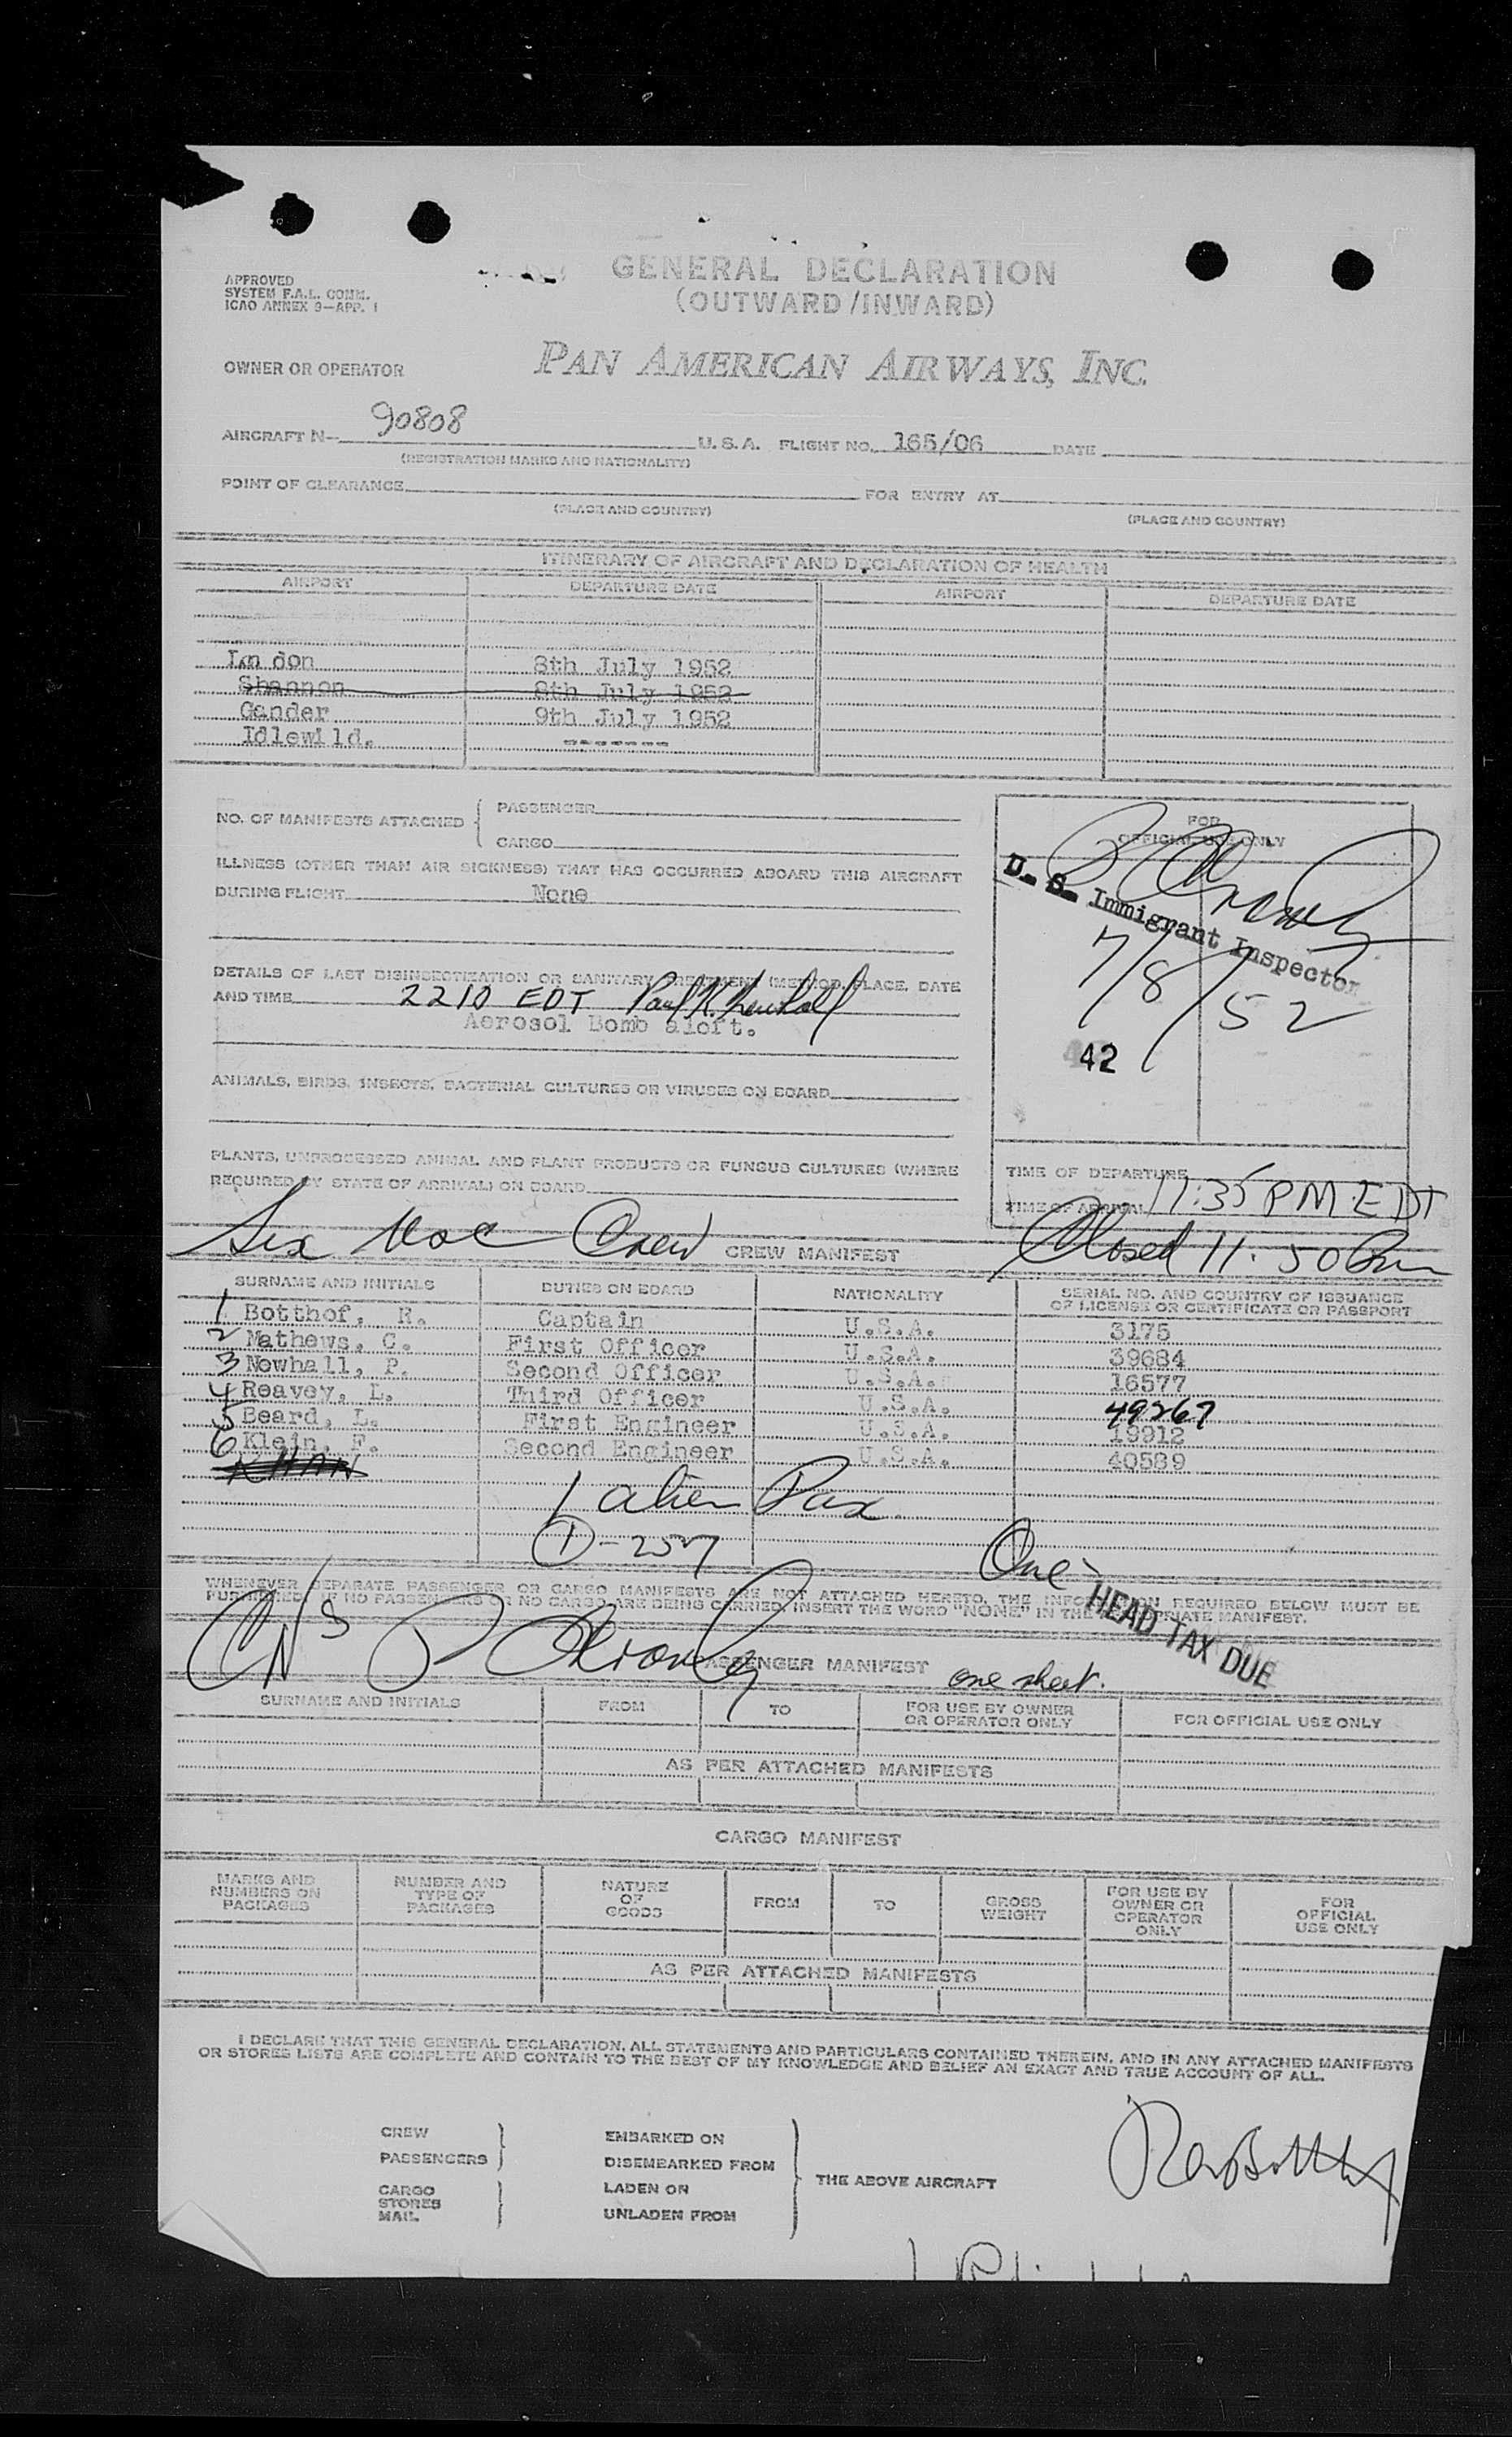 GENERAL DECLARATION
(OUTWARD/INWARD)
APPROVED
SYSTEM F.A.L. COMM.
ICAO ANNEX 9—APP. 1
OWNER OR OPERATOR PAN AMERICAN AIRWAYS, INC.
AIRCRAFT N- 90808 U.S.A. FLIGHT NO. 165/06 DATE
(REGISTRATION MARKS AND NATIONALITY)
POINT OF CLEARANCE FOR ENTRY AT
(PLACE AND COUNTRY) (PLACE AND COUNTRY)
ITINERARY OF AIRCRAFT AND DECLARATION OF HEALTH
AIRPORT DEPARTURE DATE AIRPORT DEPARTURE DATE
London 8th July 1952
Shannon 8th July 1952
Gander 9th July 1952
Idlewild. -------
NO. OF MANIFESTS ATTACHED { PASSENGER
CARGO
FOR
OFFICIAL USE ONLY
ILLNESS (OTHER THAN AIR SICKNESS) THAT HAS OCCURRED ABOARD THIS AIRCRAFT
DURING FLIGHT None
U. S. Immigrant Inspector
7/8/52
42
DETAILS OF LAST DISINSECTIZATION OR SANITARY TREATMENT (METHOD, PLACE, DATE
AND TIME 2210 EDT Paul K. Newhall
Aerosol Bomb aloft.
ANIMALS, BIRDS, INSECTS, BACTERIAL CULTURES OR VIRUSES ON BOARD
PLANTS, UNPROCESSED ANIMAL AND PLANT PRODUCTS OR FUNGUS CULTURES (WHERE
REQUIRED BY STATE OF ARRIVAL) ON BOARD
TIME OF DEPARTURE
TIME OF ARRIVAL 11:35 PM EDT
Six Crew CREW MANIFEST Closed 11:50 Pm
SURNAME AND INITIALS DUTIES ON BOARD NATIONALITY SERIAL NO. AND COUNTRY OF ISSUANCE
OF LICENSE OR CERTIFICATE OR PASSPORT
1 Botthof, R. Captain U.S.A. 3175
2 Mathews, C. First Officer U.S.A. 39684
3 Newhall, P. Second Officer U.S.A. 16577
4 Reavey, L. Third Officer U.S.A. 49267
5 Beard, L. First Engineer U.S.A. 19912
6 Klein, F. Second Engineer U.S.A. 40589
KHAN
1 alien Pax
① - 257
One
HEAD TAX DUE
WHENEVER SEPARATE PASSENGER OR CARGO MANIFESTS ARE NOT ATTACHED HERETO, THE INFORMATION REQUIRED BELOW MUST BE
FURNISHED. IF NO PASSENGERS OR NO CARGO ARE BEING CARRIED, INSERT THE WORD "NONE" IN THE APPROPRIATE MANIFEST.
PASSENGER MANIFEST one sheet.
SURNAME AND INITIALS FROM TO FOR USE BY OWNER
OR OPERATOR ONLY FOR OFFICIAL USE ONLY
AS PER ATTACHED MANIFESTS
CARGO MANIFEST
MARKS AND
NUMBERS ON
PACKAGES
NUMBER AND
TYPE OF
PACKAGES
NATURE
OF
GOODS
FROM
TO
GROSS
WEIGHT
FOR USE BY
OWNER OR
OPERATOR
ONLY
FOR
OFFICIAL
USE ONLY
AS PER ATTACHED MANIFESTS
I DECLARE THAT THIS GENERAL DECLARATION, ALL STATEMENTS AND PARTICULARS CONTAINED THEREIN, AND IN ANY ATTACHED MANIFESTS
OR STORES LISTS ARE COMPLETE AND CONTAIN TO THE BEST OF MY KNOWLEDGE AND BELIEF AN EXACT AND TRUE ACCOUNT OF ALL.
CREW
PASSENGERS
CARGO
STORES
MAIL
EMBARKED ON
DISEMBARKED FROM
LADEN ON
UNLADEN FROM
THE ABOVE AIRCRAFT